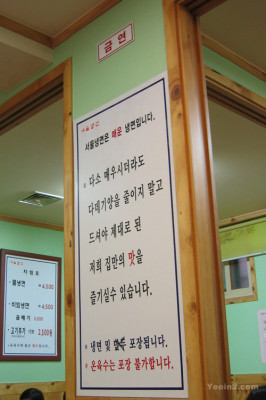 금 연
서울냉면은 매운 냉면입니다.
* 다소 매우시더라도
다데기양을 줄이지 말고
드셔야 제대로 된
저희 집만의 맛을
즐기실수 있습니다.
* 냉면 및 포장됩니다.
* 온육수는 포장 불가합니다.
차 림 표
물냉면 4,500
비빔냉면 4,500
곱배기
고기추가 2,500원
Yeoin2.com